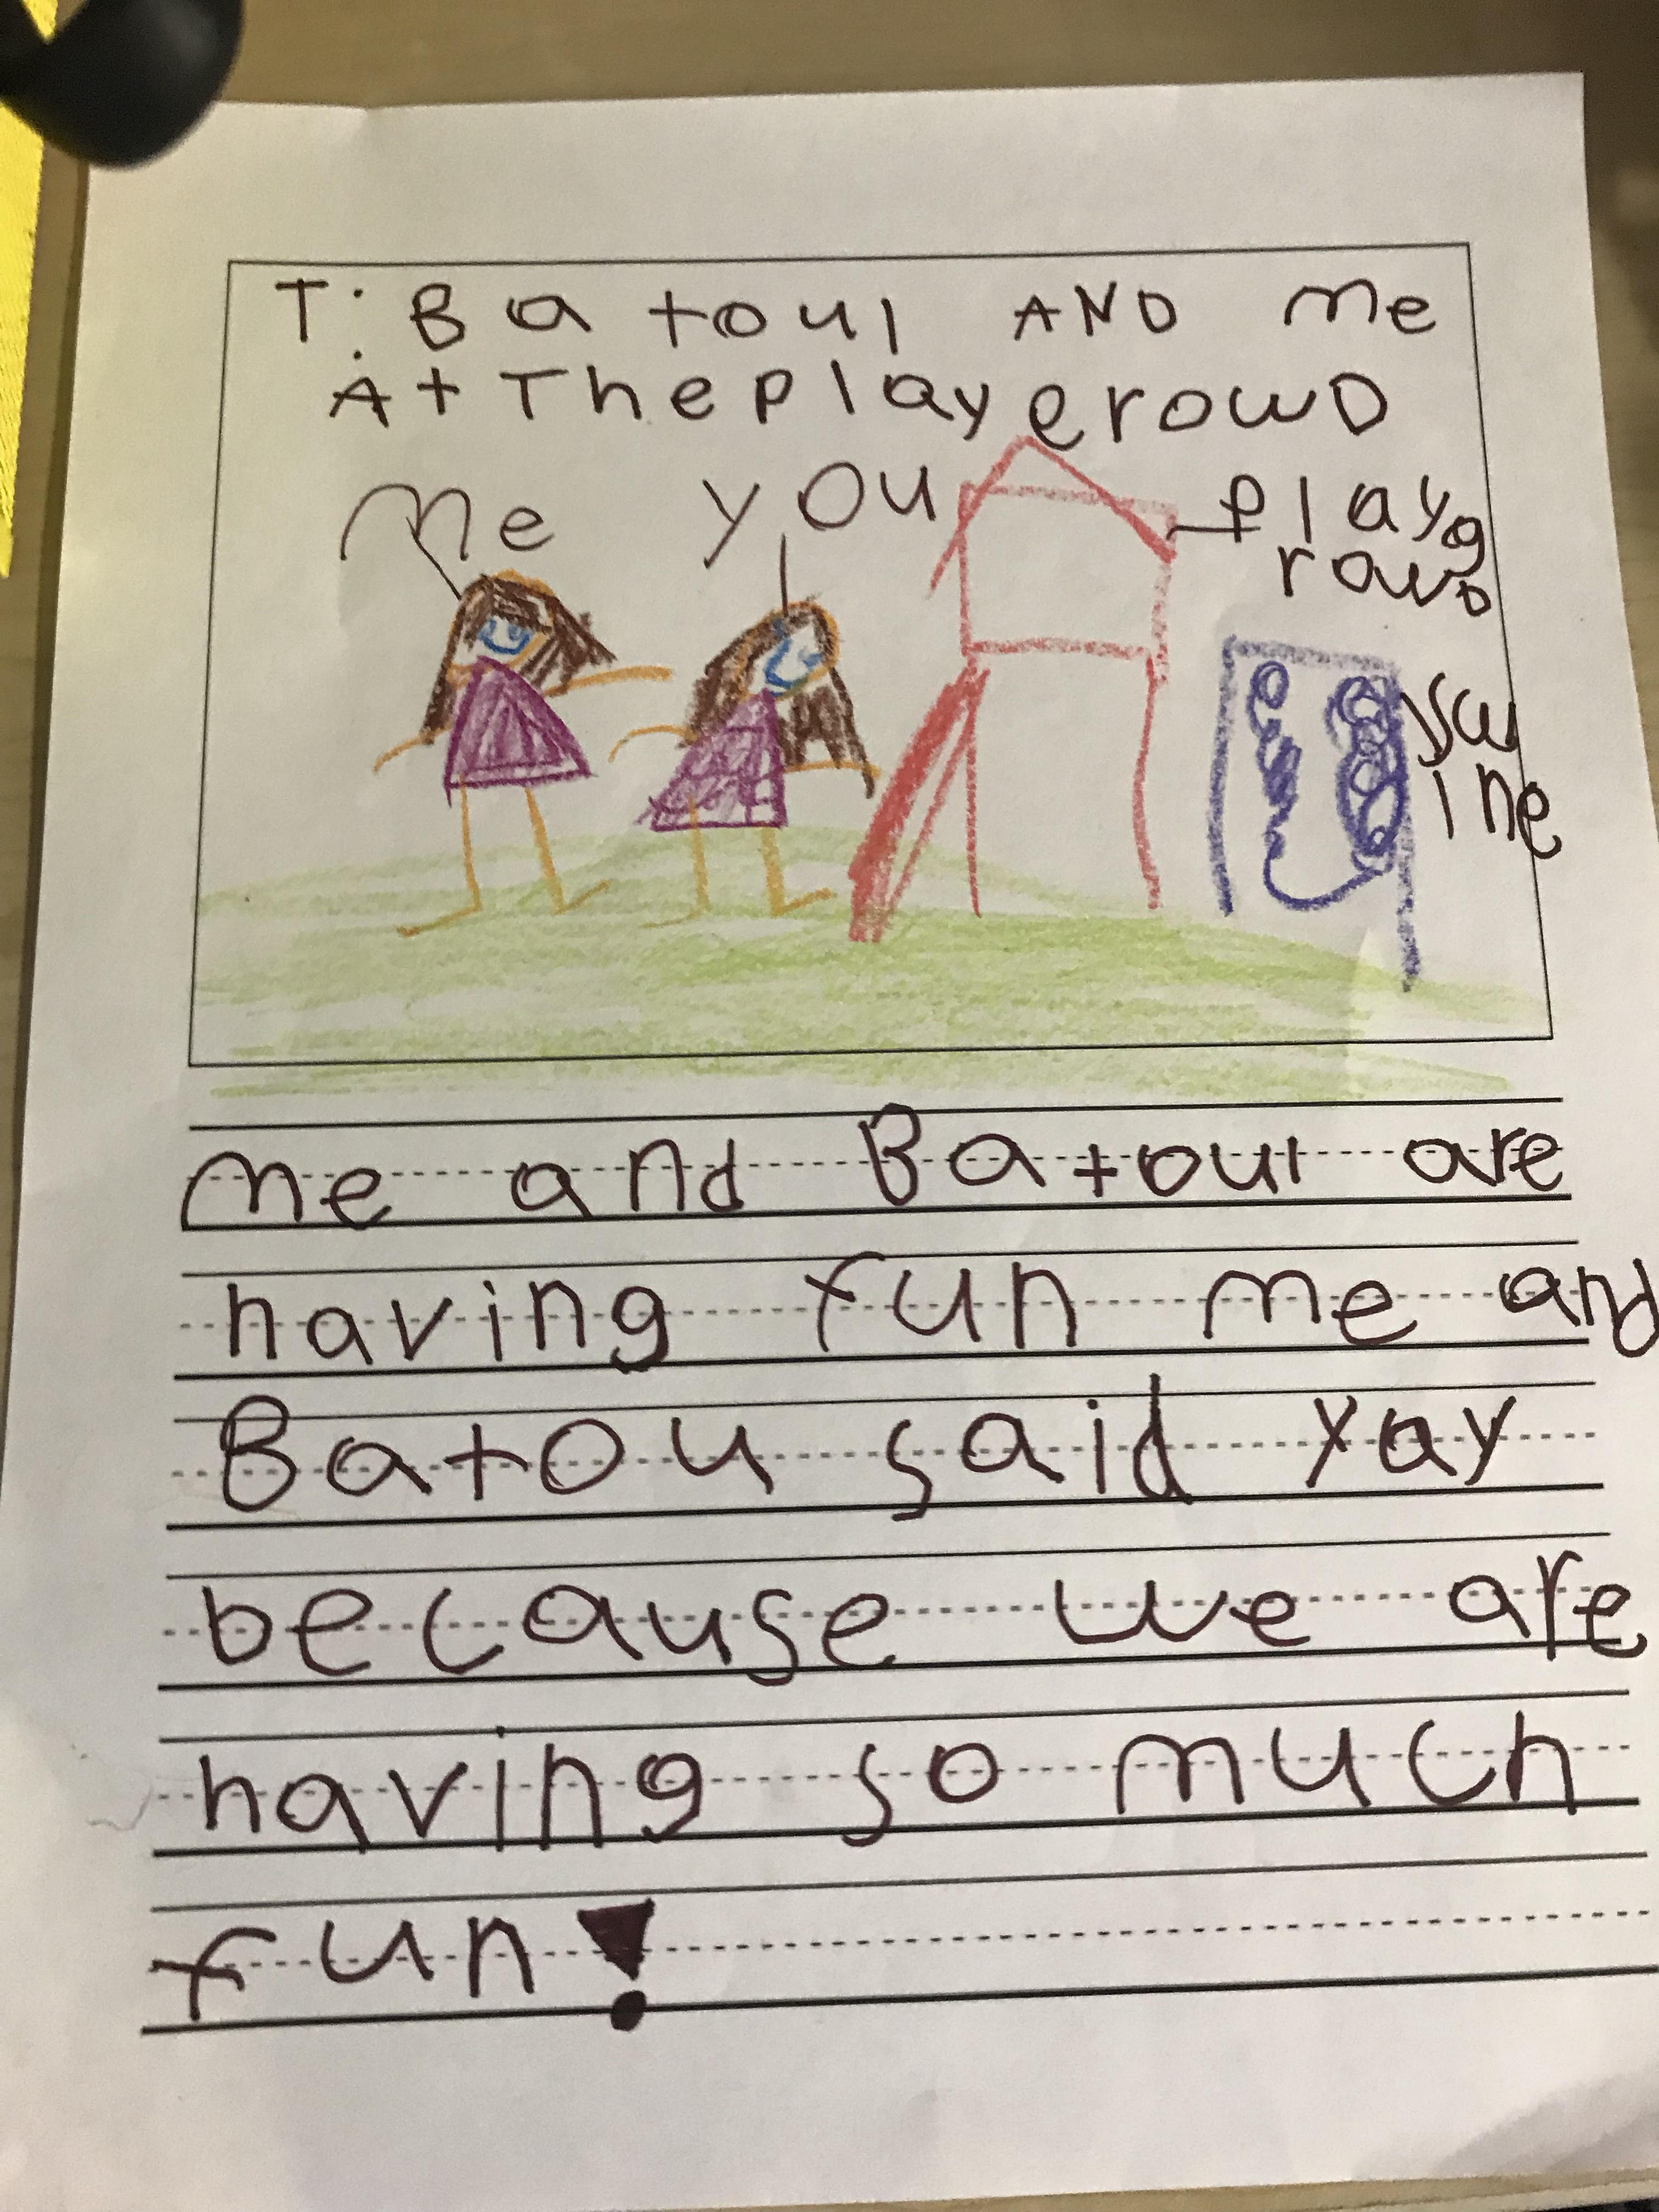 T: Batoul AND me
At The playerowD
Me you
playg
rowD
sw
ine
me and Batoul are
having fun me and
Batou said yay
because we are
having so much
fun!